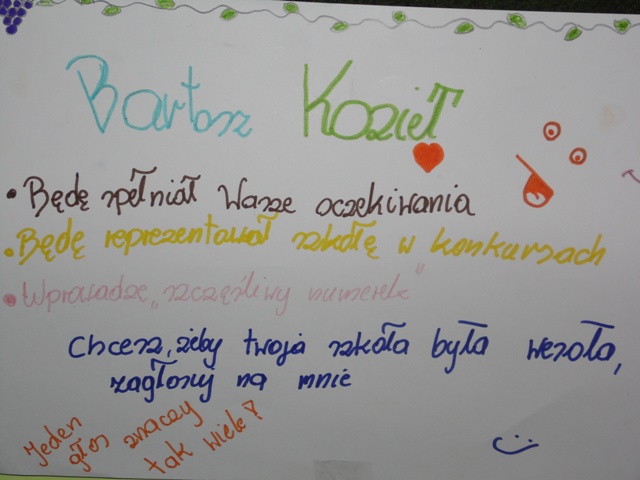 Bartosz Kozieł
• Będę spełniał Wasze oczekiwania
• Będę reprezentował szkołę w konkursach
• Wprowadzę „szczęśliwy numerek"
Chcesz, żeby twoja szkoła była wesoła,
zagłosuj na mnie
Jeden
głos znaczy
tak wiele?